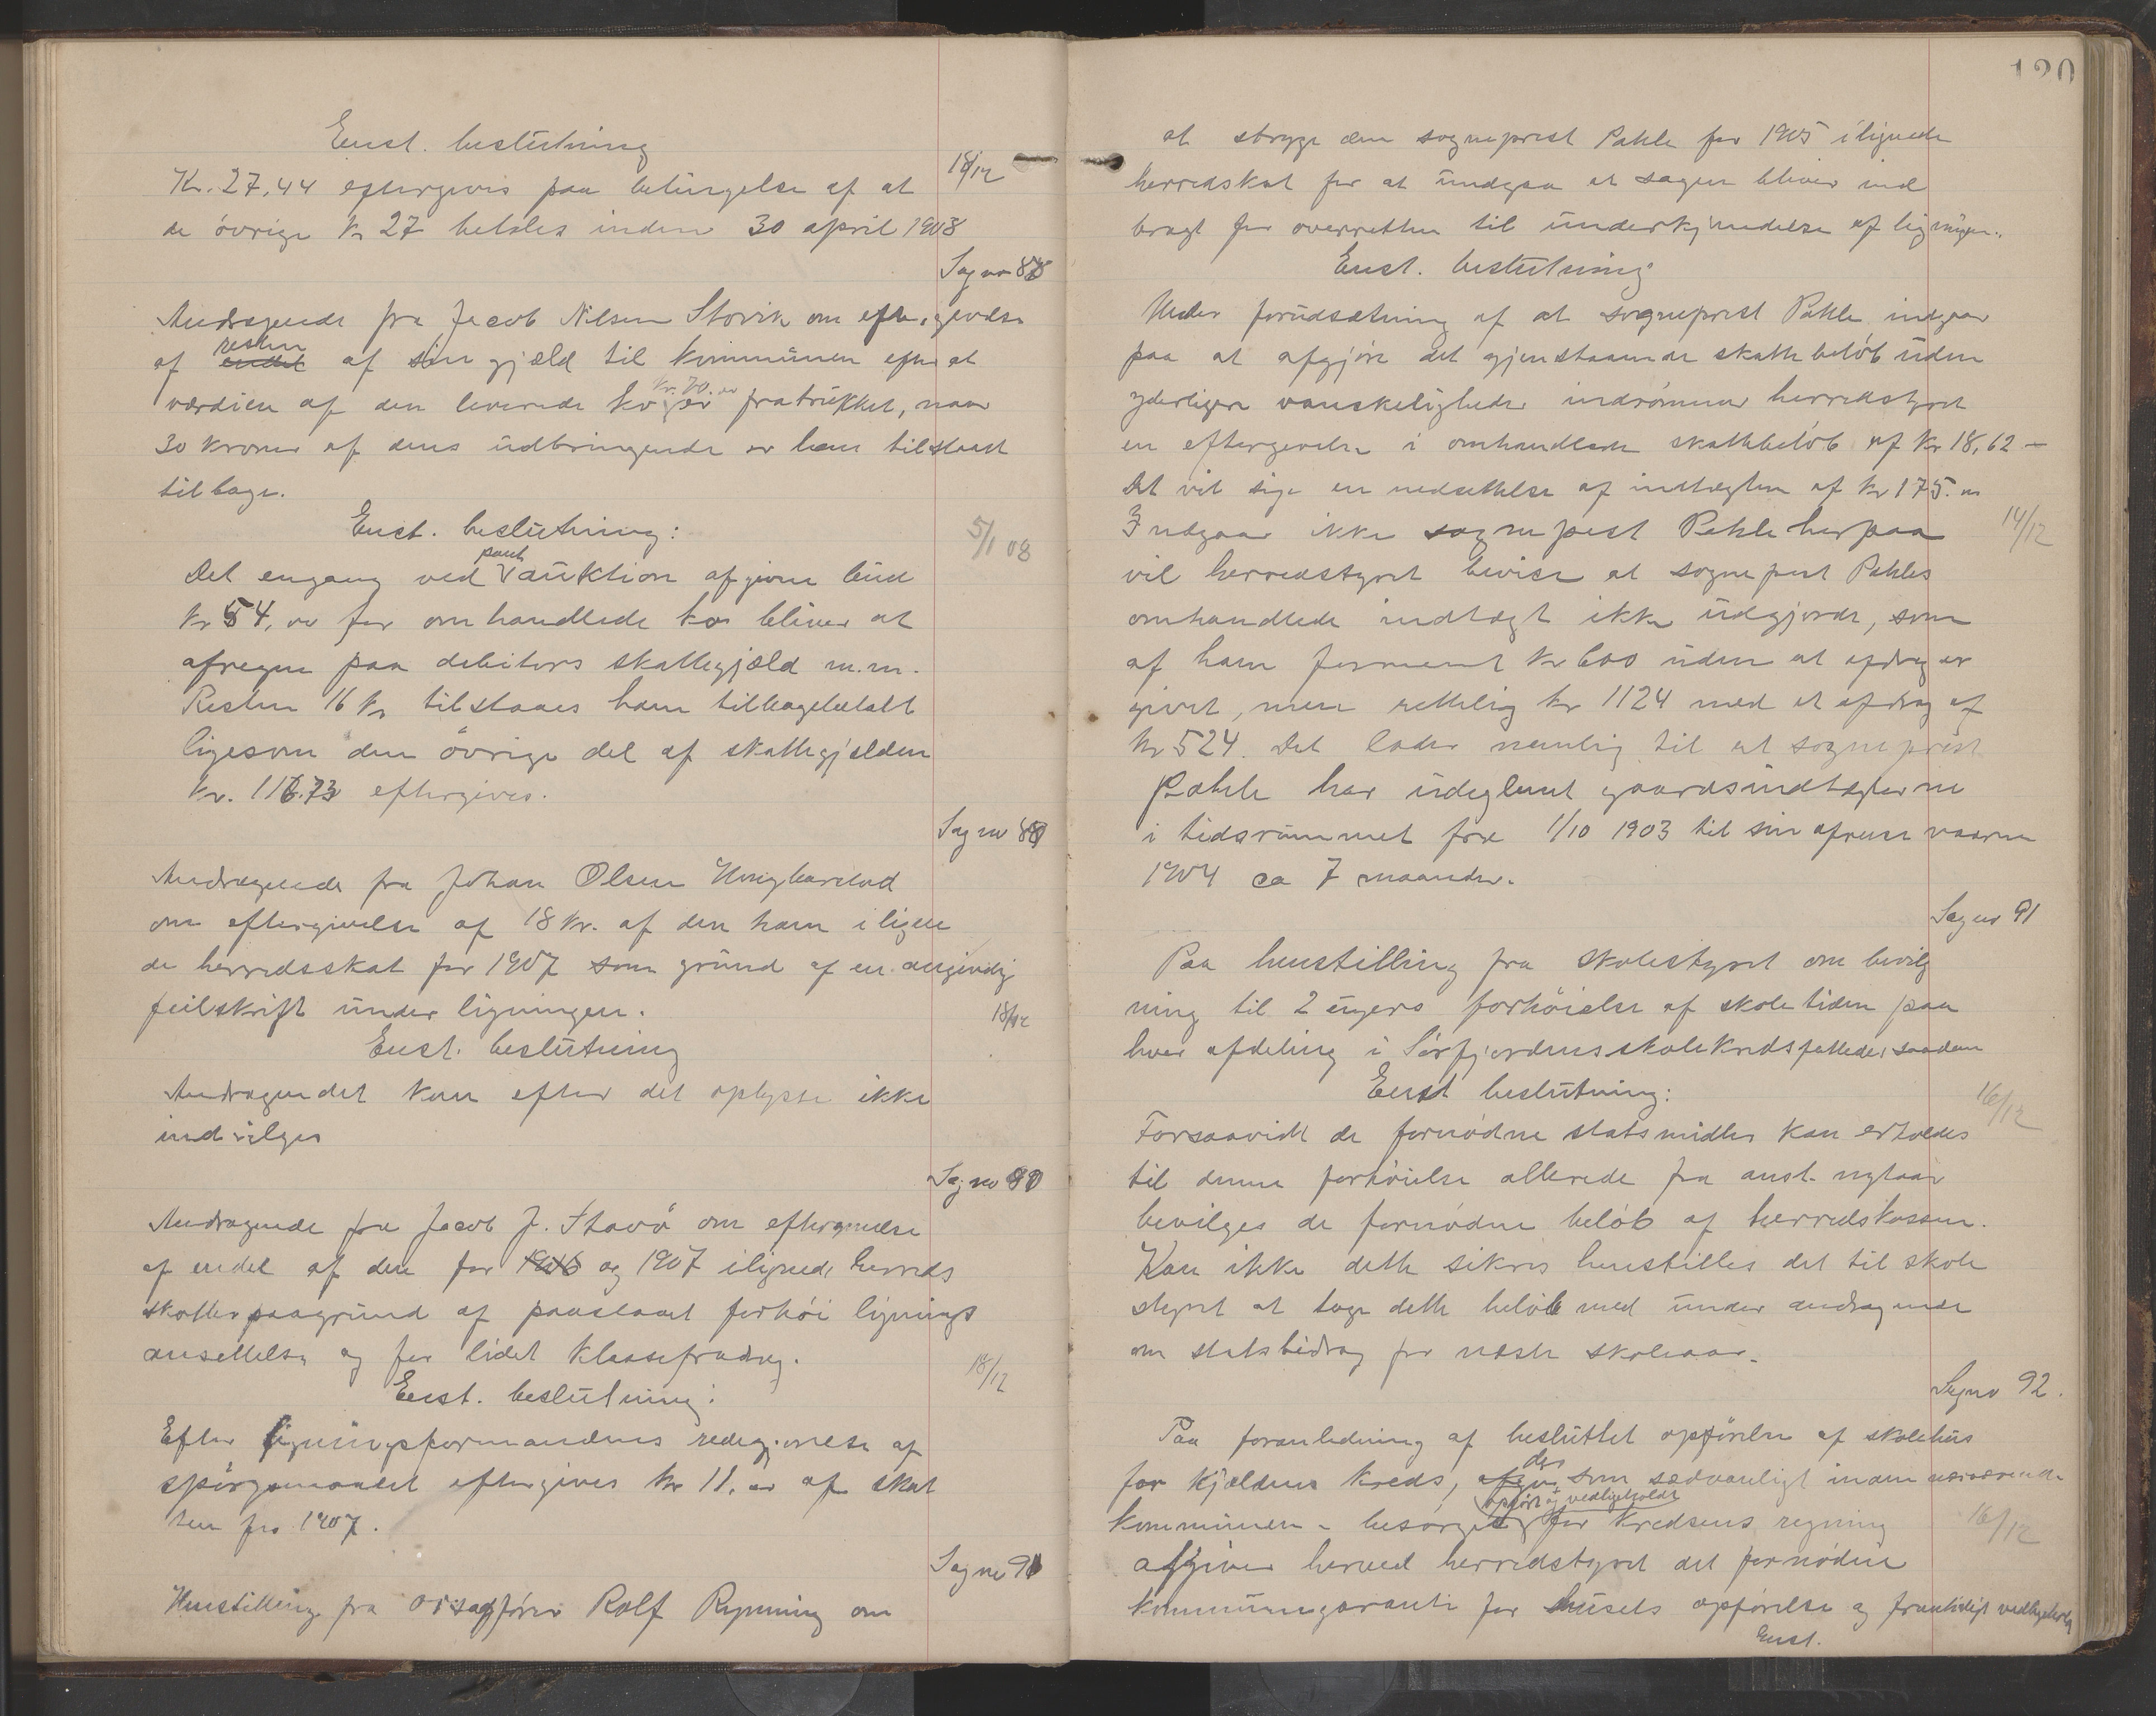 Enst. beslutning
18/12
Kr. 27,44 eftergives paa betingelse af at
de övrige kr 27 betales inden 30 april 1908
Sag no 87
Andragende fra Jacob Nilsen Storvik om eftergivelse
af resten af sin gjæld til kommunen efter at
værdien af den leverede ko kr. 70. er fratrukket, naar
30 kroner af dens udbringende er ham tilstaaet
tilbage.
Enst. beslutning:
5/1 08
Det engang ved pant auktion afgivne bud
kr 54, oo for omhandlede ko bliver at
afregne paa debitors skattegjæld m.m.
Resten 16 kr tilstaaes ham tilbagebetalt
ligesom den övrige del af skattegjælden
kr. 116.73 eftergives.
Sag no 88
Andragende fra Johan Olsen
om eftergivelse af 18 kr. af den ham iligne
de herredsskat for 1907 som grund af en angivelig
feilskrift under ligningen.
18/12
Enst. beslutning
Andragendet kan efter det oplyste ikke
indvilges
Sag no 89
Andragende fra Jacob J. om eftergivelse
af endel af den for 1906 og 1907 ilignede herreds
skatter paagrund af paastaaet forhöi lignings
ansettelse og for lidet klassefradrag.
18/12
Enst. beslutning:
Efter ligningsformandens redegjörelse af
spörgsmaalet eftergives kr 11. oo af skat
ten for 1907.
Sag no 90
Henstilling fra o r sagförer Rolf Rynning om
120
at stryge den sogneprest Pahle for 1905 ilignede
herredskat for at undgaa at sagen bliver ind
bragt for overretten til underkjendelse af ligningen.
Enst. beslutning
Under forudsætning af at sogneprest Pahle indgaar
paa at afgjöre det gjenstaaende skattebelöb uden
yderligere vanskeligheder indrömmer herredstyret
en eftergivelse i omhandlede skattebelöb af kr 18,62 –
Det vil sige en nedsettelse af indtægten af kr 175. oo
Indgaar ikke sogneprest Pahle herpaa
14/12
vil herredstyret bevise at sogneprest Pahles
omhandlede indtægt ikke udgjorde, som
af ham forment kr 600 uden at afdrag er
givet, men rettelig kr 1124 med et afdrag af
kr 524. Det lader nemlig til at sogneprest
Pahle har udeglemt gaardsindtægterne
i tidsrummet fra 1/10 1903 til sin afreise vaaren
1904 ca 7 maaneder.
Sag no 91
Paa henstilling fra skolestyret om bevilg
ning til 2 ugers forhöielse af skoletiden paa
hver afdeling i Sörfjordens skolekreds saadan
Enst beslutning:
16/12
Forsaavidt de fornödne statsmidler kan erholdes
til denne forhöielse allerede fra anst. nytaar
bevilges de fornödne belöb af herredskassen.
Kan ikke dette sikres henstilles det til skole
styret at tage dette belöb med under andragende
om statsbidrag for næste skoleaar.
Sag no 92.
Paa foranledning af besluttet opförelse af skolehus
for Kjeldens kreds, der som sædvanligt inden nærværende
opfört og vedligeholdt
kommunen – besörges for kredsens regning
16/12
afgiver herved herredstyret det fornödne
kommunegaranti for husets opförelse og fremtidigt vedligehold
Enst.